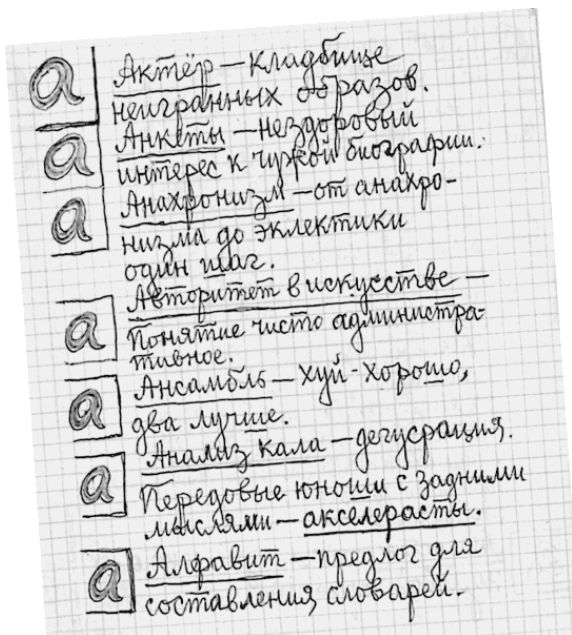 а Актёр — кладбище
неигранных образов.
а Анкеты — нездоровый
интерес к чужой биографии.
а Анахронизм — от анахро-
низма до эклектики
один шаг.
а Авторитет в искусстве —
Понятие чисто администра-
тивное.
а Ансамбль — хуй-хорошо,
два лучше.
а Анализ кала — дегусрация.
Передовые юноши с задними
мыслями — акселерасты.
а Алфавит — предлог для
составления словарей.